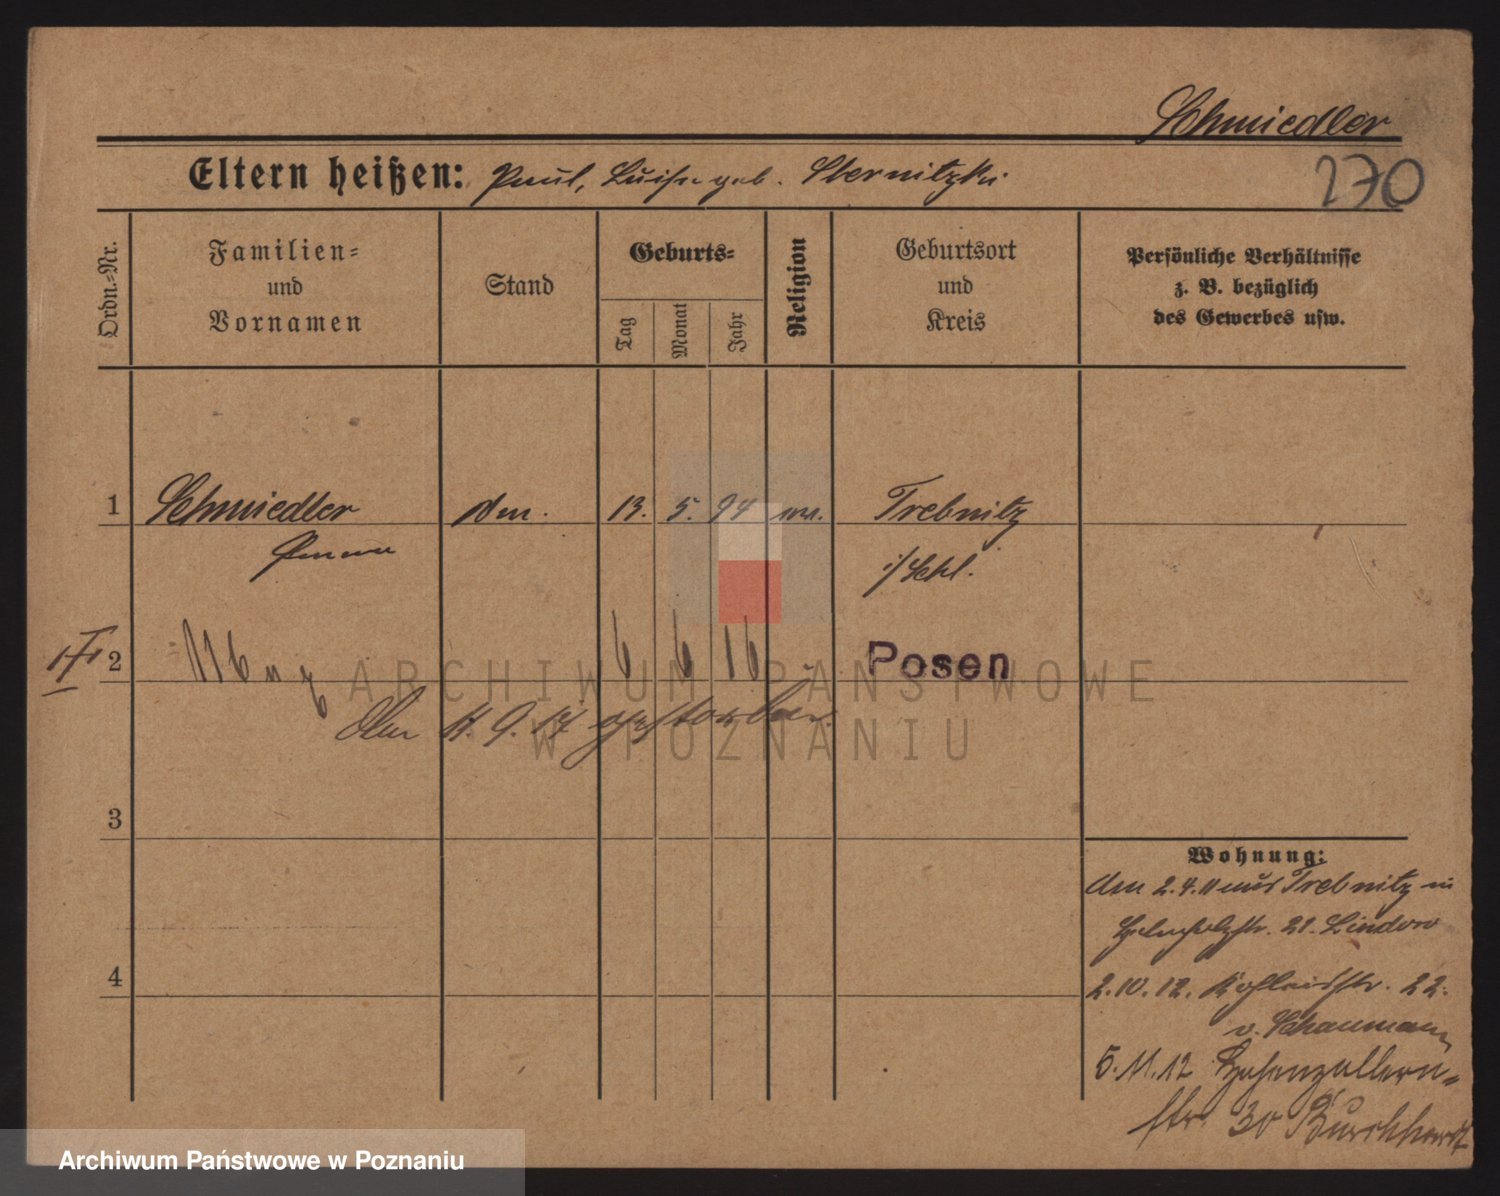 Schmiedler
Eltern heißen: Paul, Luise geb. Sternitzki
270
Ordn.=Nr.
Familien=
und
Vornamen
Stand
Geburts=
Tag
Monat
Jahr
Religion
Geburtsort
und
Kreis
Persönliche Verhältnisse
z. B. bezüglich
des Gewerbes usw.
1
Schmiedler
13. 5. 94
Trebnitz
i/Schl.
2
6 6 16
Posen
ARCHIWUM PAŃSTWOWE
W POZNANIU
den 11. 9. 17 gestorben.
3
Wohnung:
den 2.4.11 aus Trebnitz in
21. Lindow
4
2.10.12. 22.
v. Schaumann
5.11.12 Hohenzollern-
str. 30 Burchhardt
Archiwum Państwowe w Poznaniu